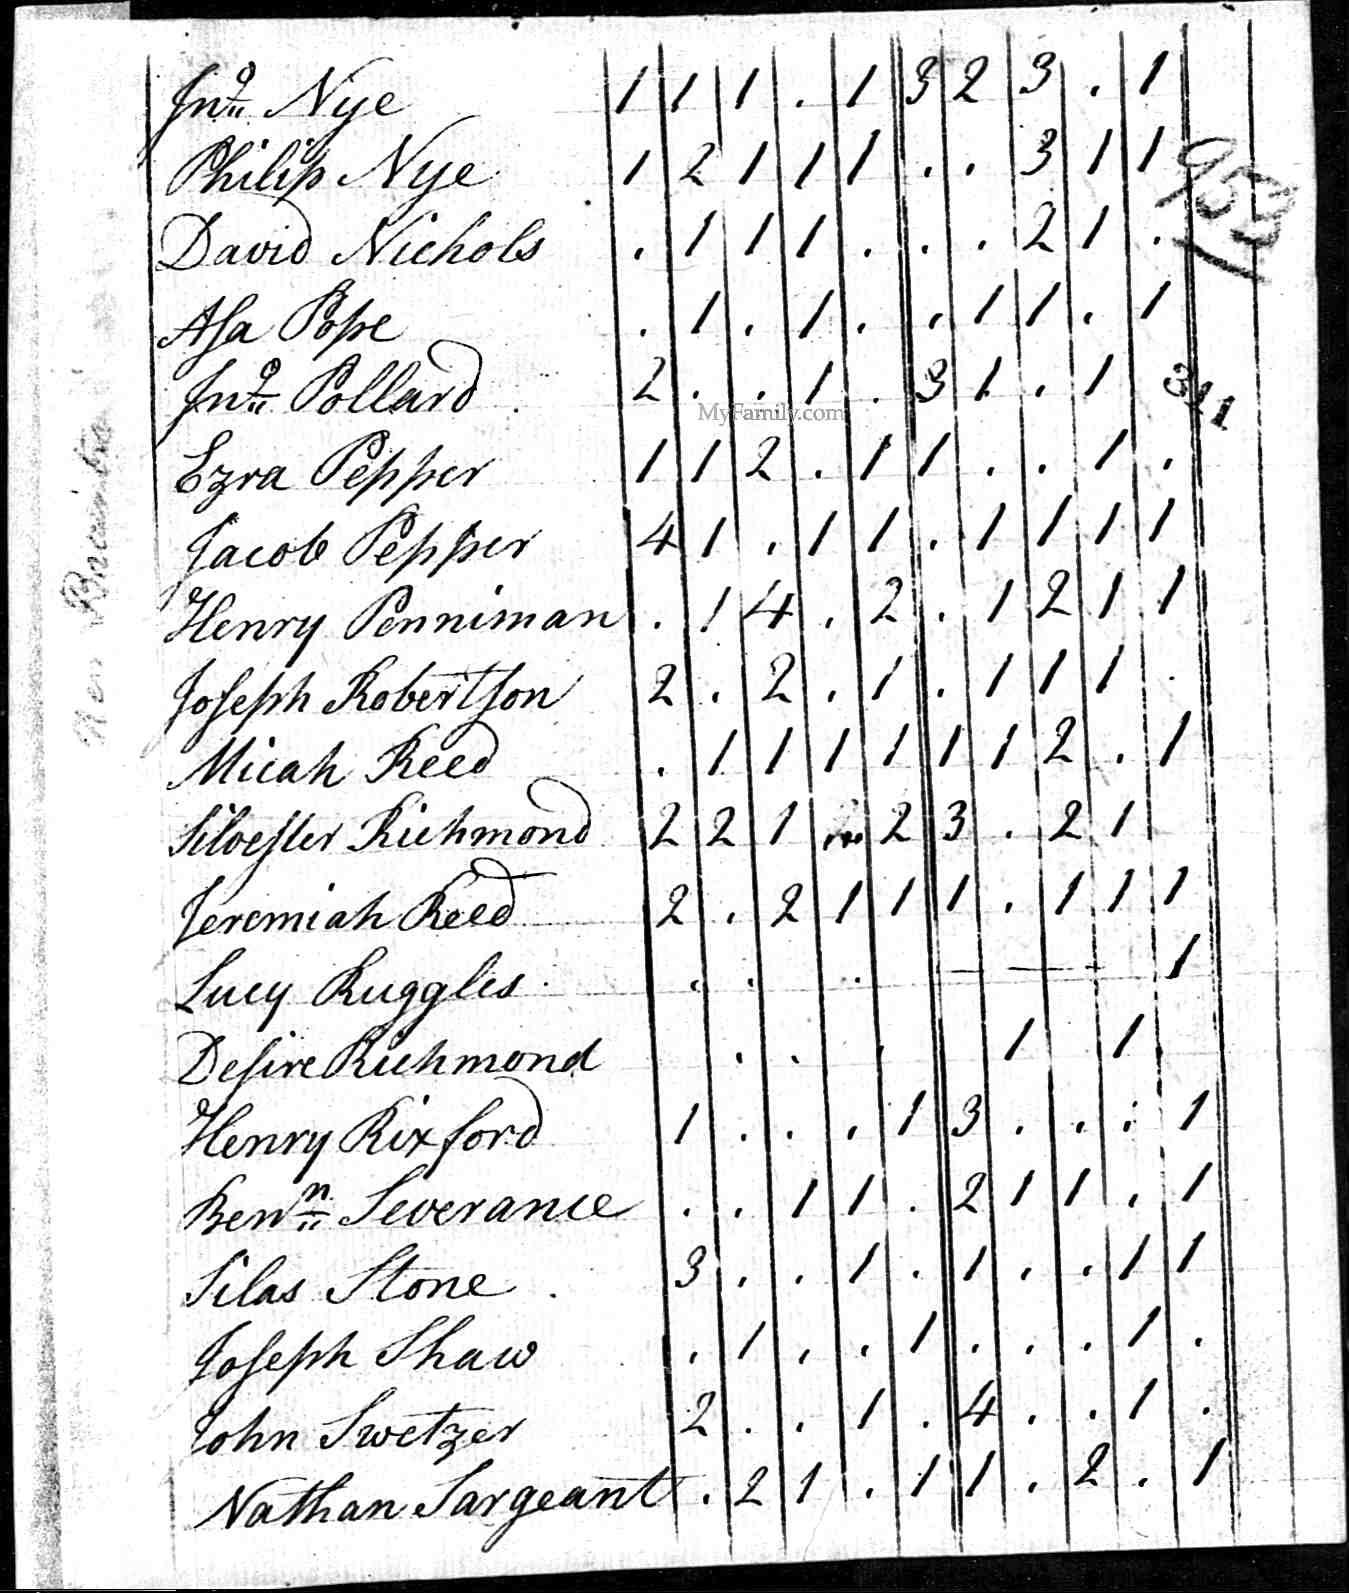 Jnº Nye 1 1 1 . 1 3 2 3 . 1
Philip Nye 1 2 1 1 1 . . 3 1 1
953
David Nichols . 1 1 1 . . . 2 1 .
Asa Pope . 1 . 1 . . 1 1 . 1
Jnº Pollard 2 . . 1 . 3 1 . 1
311
MyFamily.com
Ezra Pepper 1 1 2 . 1 1 . . 1 .
Jacob Pepper 4 1 . 1 1 . 1 1 1 1
Henry Penniman . 1 4 . 2 . 1 2 1 1
Joseph Robertson 2 . 2 . 1 . 1 1 1 .
Micah Reed . 1 1 1 1 1 1 2 . 1
Silvester Richmond 2 2 1 2 3 . 2 1
Jeremiah Reed 2 . 2 1 1 1 . 1 1 1
Lucy Ruggles . . . — — — 1
Desire Richmond . . . 1 1
Henry Rixford 1 . . . 1 3 . . . 1
Benⁿ Severance . . 1 1 . 2 1 1 . 1
Silas Stone 3 . . 1 . 1 . . 1 1
Joseph Shaw . 1 . . 1 . . . 1 .
John Swetzer 2 . . 1 . 4 . . 1 .
Nathan Sargeant . 2 1 . 1 1 . 2 . 1
New Braintree